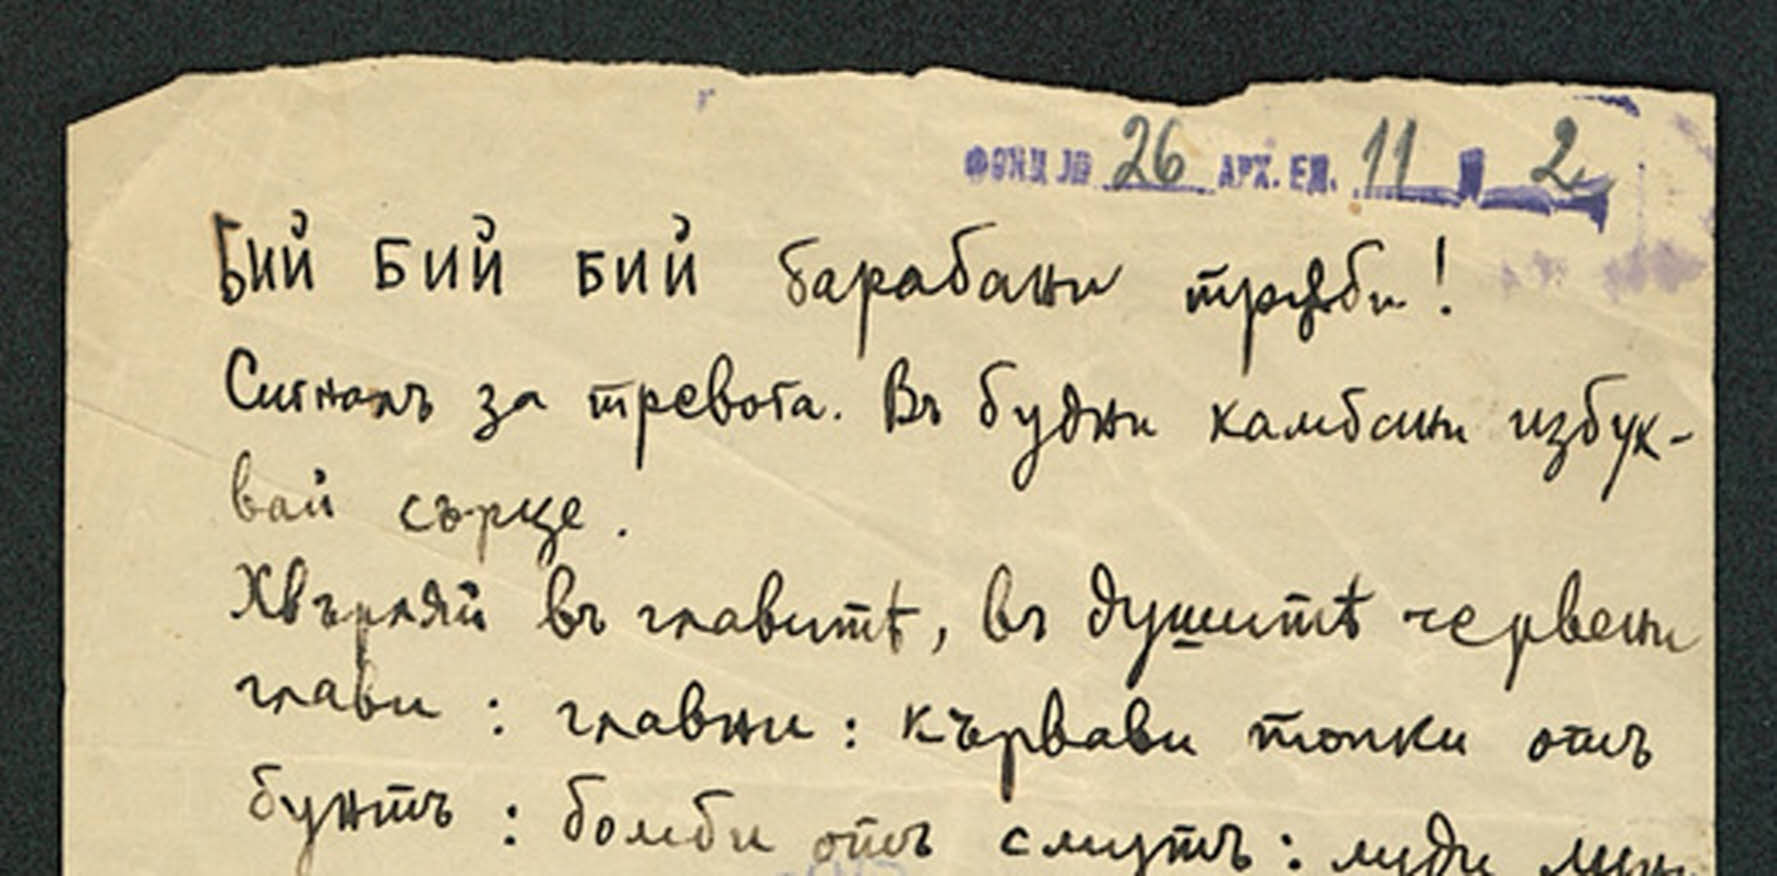 ФОНД № 26 АРХ. ЕД. 11 Л 2
БИЙ БИЙ БИЙ барабани трѫби!
Сигналъ за тревога. Въ будни камбани избук-
вай сърце.
Хвърляй въ главитѣ, въ душитѣ червени
глави: главни: кървави топки отъ
бунтъ: бомби отъ смутъ: луди